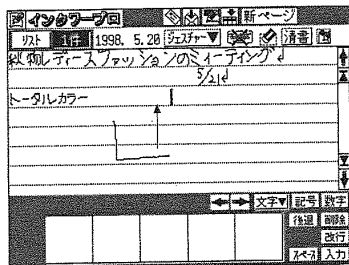 インクワープロ 新ページ
リスト 1件 1998. 5.20 ジェスチャー▼ 清書
秋物レディースファッションのミーティング↲
5/21↲
トータルカラー
文字▼ 記号 数字
後退 削除
改行
スペース 入力